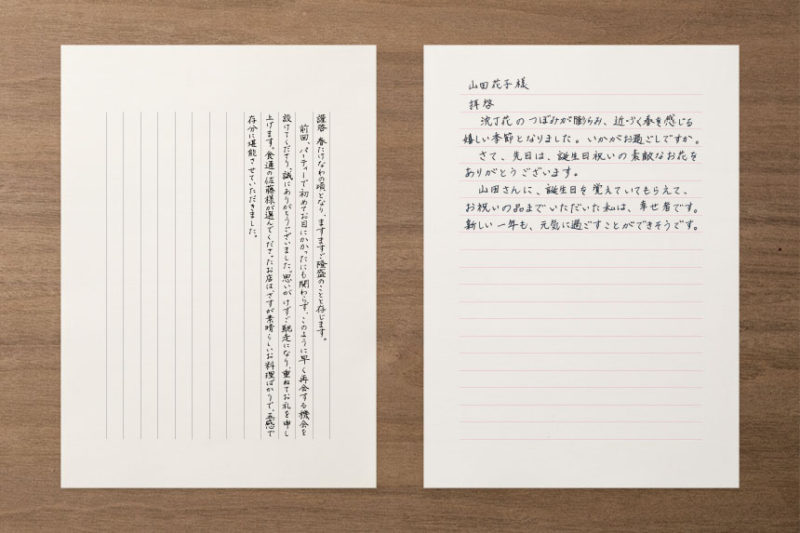 謹啓 春たけなわの頃となり、ますますご隆盛のことと存じます。
前回、パーティーで初めてお目にかかったにも関わらず、このように早く再会する機会を
設けてくださり、誠にありがとうございました。思いがけずご馳走になり、重ねてお礼を申し
上げます。食通の佐藤様が選んでくださったお店は、さすが素晴らしいお料理ばかりで、五感で
存分に堪能させていただきました。
山田花子様
拝啓
沈丁花のつぼみが膨らみ、近づく春を感じる
嬉しい季節となりました。いかがお過ごしですか。
さて、先日は、誕生日祝いの素敵なお花を
ありがとうございます。
山田さんに、誕生日を覚えていてもらえて、
お祝いの品までいただいた私は、幸せ者です。
新しい一年も、元気に過ごすことができそうです。